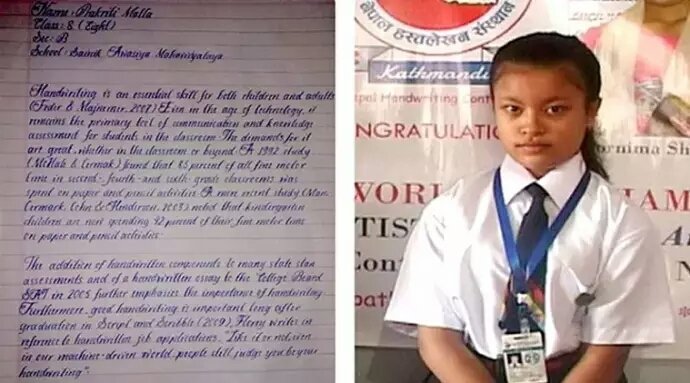 Name: Prakriti Malla
Class: 8 (Eight)
Sec: B
School: Sainik Awasiya Mahavidyalaya
Handwriting is an essential skill for both children and adults
(Feder & Majnemer, 2007). Even in the age of technology, it
remains the primary tool of communication and knowledge
assessment for students in the classroom. The demands for it
are great, whether in the classroom or beyond. A 1992 study
(McHale & Cermak) found that 85 percent of all fine motor
time in second-, fourth- and sixth- grade classrooms was
spent on paper and pencil activities. A more recent study
Cermark, Cohn & Henderson, 2003) noted that kindergarten
children are now spending 42 percent of their fine motor time
on paper and pencil activities.
The addition of handwritten components to many state
assessments and of a handwritten essay to the College Board
SAT in 2005 further emphasize the importance of handwriting.
Furthermore, good handwriting is important long after
graduation. In Script and Scribble (2009), Florey writes in
reference to handwritten job applications. "Like it or not, even
in our machine-driven world, people still judge you by your
handwriting".
नेपाल हस्तलेखन संस्थान
Kathmandu
Handwriting
ONGRATULATIO
rnima Sh
WORL
HAM
TIST
Con
path